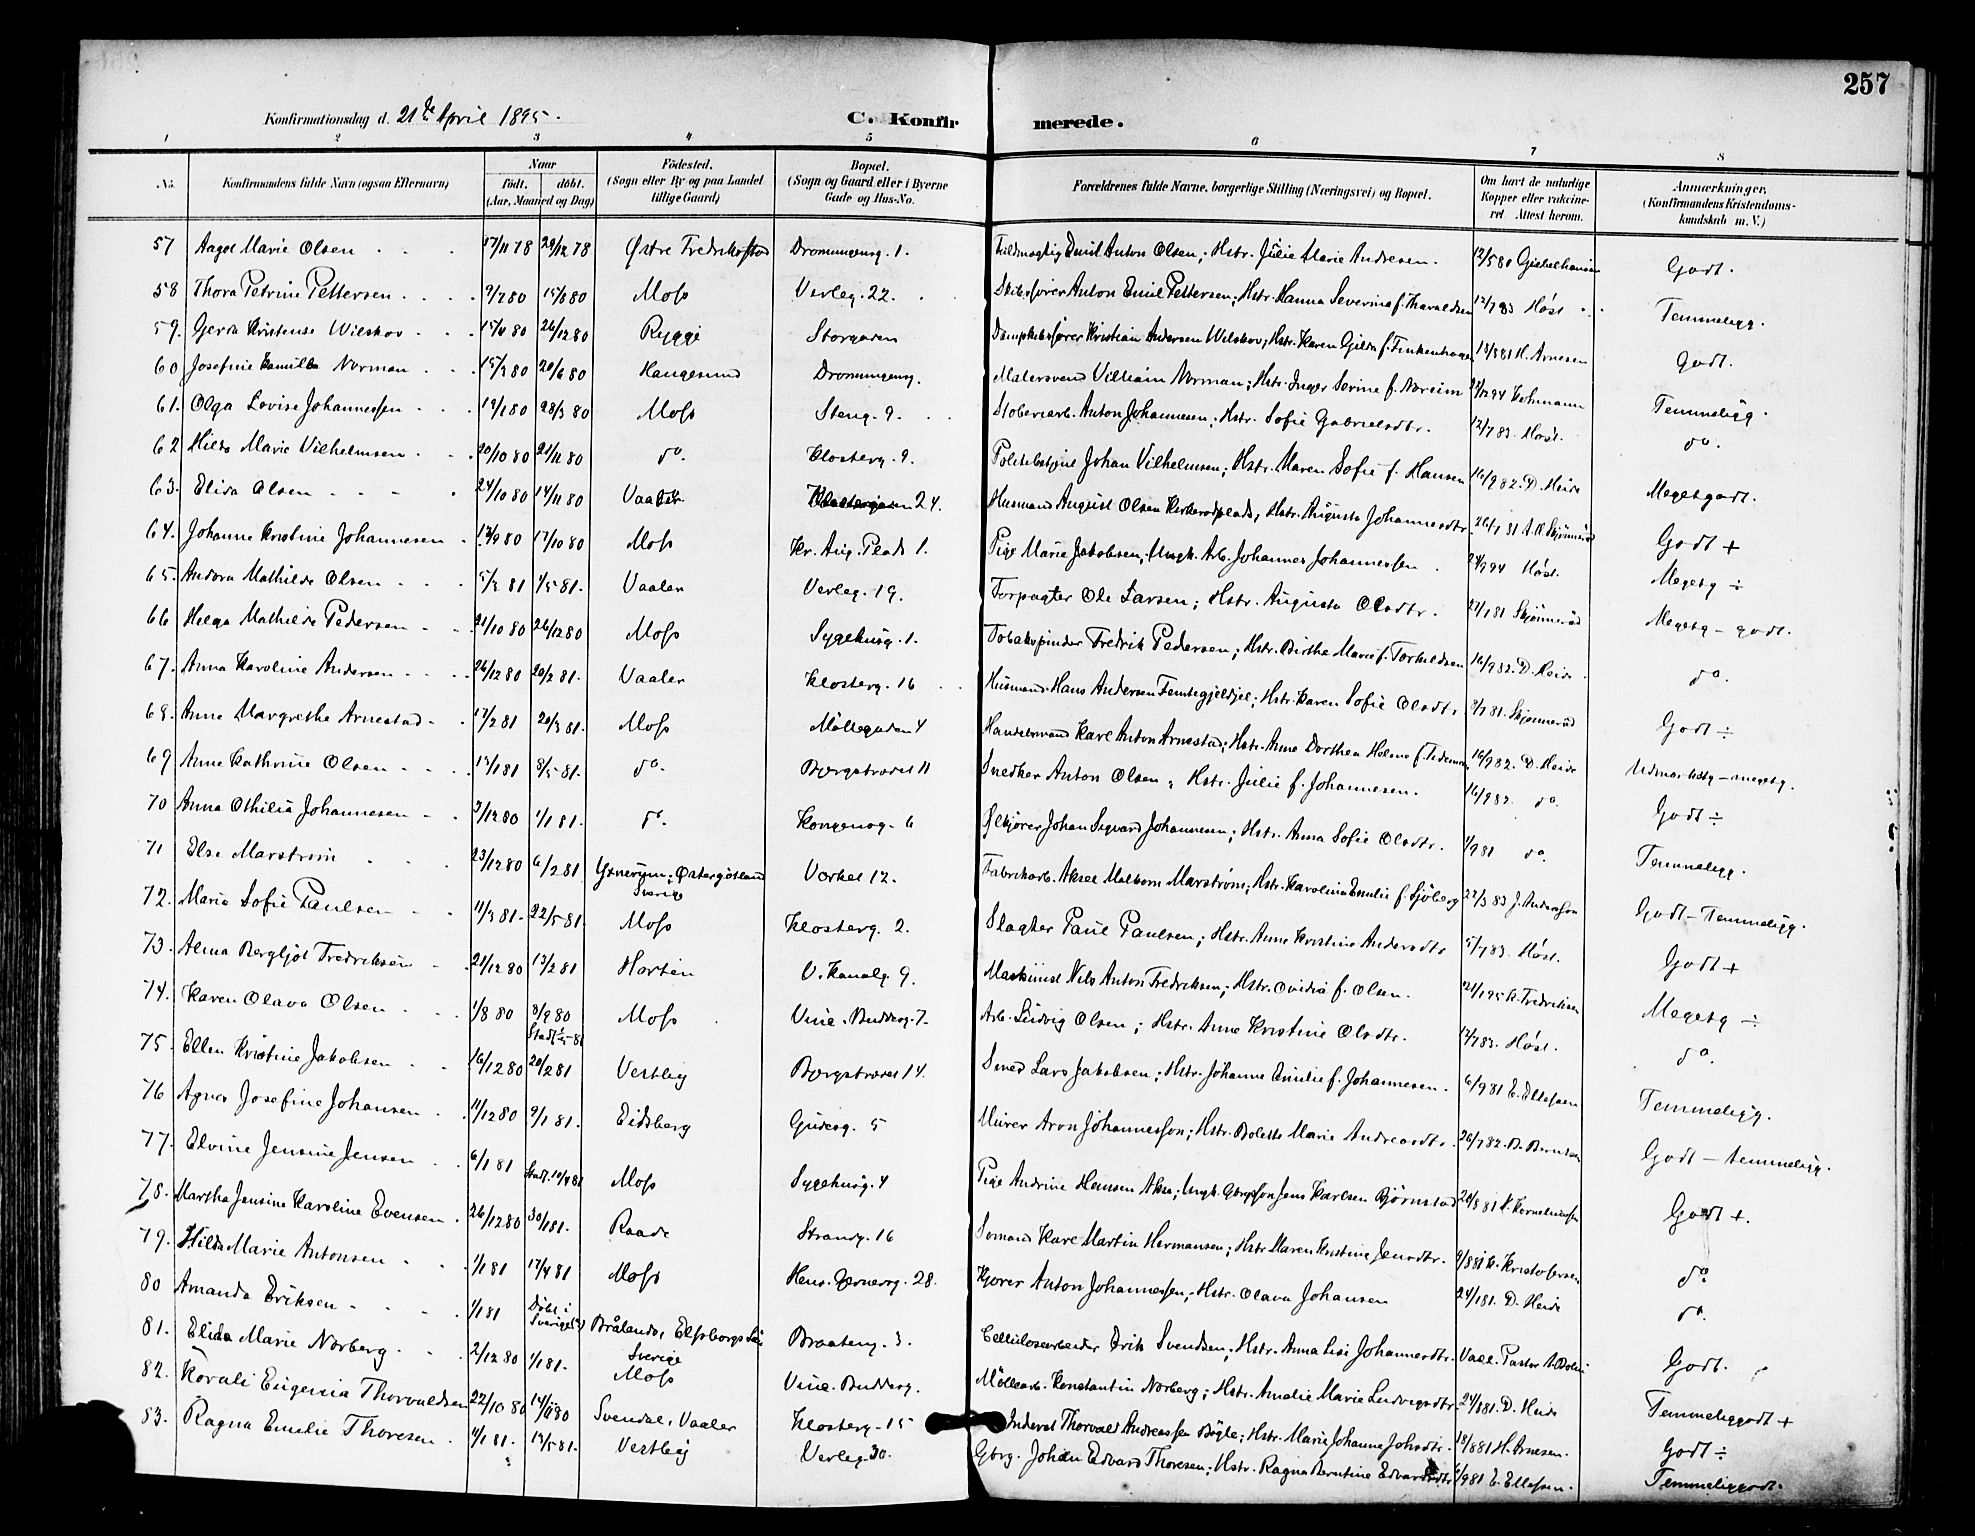 257
Konfirmationsdag d. 21de April 1895.
C. Konfirmerede.
1 2 3 4 5 6 7 8
No. Konfirmandens fulde Navn (ogsaa Efternavn) Naar födt. döbt. (Aar, Maaned og Dag) Födested. (Sogn eller By og paa Landet tillige Gaard) Bopæl. (Sogn og Gaard eller i Byerne Gade og Hus-No. Forældrenes fulde Navne, borgerlige Stilling (Næringsvei) og Bopæl. Om havt de naturlige Kopper eller vaccineret. Attest herom. Anmærkninger. (Konfirmandens Kristendomskundskab m. V.)
57 Aagot Marie Olsen 17/11 78 29/12 78 Østre Fredrikstad Dronningensg. 1. Fuldmægtig Emil Anton Olsen; Hstr. Julie Marie Andresen. 12/5 80 Godt.
58 Thora Petrine Pettersen 9/7 80 15/8 80 Moss Verleg. 22. Skibsfører Anton Emil Pettersen; Hstr. Hanna Severine f. Thoraldsen 12/7 83 Høst Temmeligg.
59. Gerda Kristense Wilskov 15/11 80 26/12 80 Rygge Storgaden Dampskibsfører Kristian Andersen Wilskov; Hstr. Karen Gilda f. Finkenhagen 18/8 81 H. Arnesen Godt.
60 Josefine Kamilla Norman 15/3 80 20/6 80 Haugesund Dronningensg. Malersvend Vilhelm Norman; Hstr. Inger Serine f. Noreim Temmeligg.
61. Olga Lovise Johannessen 19/1 80 28/3 80 Moss Steng. 9. Stoberiarb. Anton Johannesen; Hstr. Sofie Gabrielsdtr. 12/7 83. Høst. do.
62 Hilda Marie Vilhelmsen 20/10 80 21/11 80 do. Klosterg. 9. Politibetjent Johan Vilhelmsen; Hstr. Maren Sofie f. Hansen 16/9 82. D. Heide Megetgodt.
63. Elida Olsen 24/10 80 14/11 80 Vaaler Klostergaden 24. Husmand August Olsen; Hstr. Augusta Johannesdtr. Godt +
64. Johanne Kristine Johannesen 12/9 80 17/10 80 Moss Kr. Aug. Plads 1. Pige Marie Jakobsen; Ungk. Arb. Johannes Johannessen 24/9 94 Høst. Megetg ÷
65. Andora Mathilde Olsen 5/3 81 1/5 81. Vaaler Verleg. 19. Forpagter Ole Larsen; Hstr. Augusta Olsdtr. 27/1 81 Skjønnerud Megetg - godt.
66 Helga Mathilde Pedersen 21/10 80 26/12 80 Moss Sygehusg. 1. Tobakspinder Fredrik Pedersen; Hstr. Birthe Marie f. Torkildsen 16/9 82. D. Heide. do.
67. Anna Karoline Andersen 26/12 80 20/2 81. Vaaler Klosterg. 16 Husmand Hans Andersen; Hstr. Karen Sofie Olsdtr. Skjønnerud Godt ÷
68. Anne Margrethe Arnestad 17/2 81 20/3 81. Moss Møllegaden 4 Handelsmand Karl Anton Arnestad; Hstr. Anne Dorthea Helene f. 16/9 82. D. Heide Udmærketg - megetg.
69 Anne Kathrine Olsen 15/1 81 8/5 81. do. Bergstrædet 11 Snedker Anton Olsen; Hstr. Julie f. Johannesen. 16/9 82. do. Godt ÷
70 Anna Othilia Johannesen 3/12 80 1/1 81. do. Kongensg. 6 Ølkjører Johan Sigvard Johannesen; Hstr. Anna Sofie Olsdtr. 1/9 81 do. Temmeligg.
71 Else Marstrøm 23/12 80 6/2 81 Østergøtland Sverige Værket 12. Fabrikarb. Aksel Malkom Marstrøm; Hstr. Karolina Emilie f. Sjöberg 22/3 83 J. Anderson Godt - Temmeligg.
72. Marie Sofie Paulsen 11/3 81. 22/5 81. Moss Klosterg. 2. Slagter Paul Paulsen; Hstr. Anne Kristine Andersdtr 5/7 83. Høst. Godt +
73. Alma Bergljot Fredriksen 21/12 80 13/2 81 Horten V. Kanalg. 9. Maskinist Nils Anton Fredriksen; Hstr. Ovidia f. Olsen. 21/1 95 Fredriksen Megetg ÷
74. Karen Olava Olsen 1/8 80 8/9 80 Moss Vine. Budderg. 7. Arb. Ludvig Olsen; Hstr. Anne Kristine Olsdtr. 12/7 83. Høst. do.
75. Ellen Kristine Jakobsen 16/12 80 20/2 81 Vestby Bergstrædet 14. Smed Lars Jakobsen; Hstr. Johanne Emilie f. Johannesen. 6/9 81 E. Ellefsen Temmeligg.
76 Agnes Josefine Johansen 11/12 80 9/1 81. Eidsberg Gudesg. 5 Murer Aron Johannesson; Hstr. Bolette Marie Andreasdtr. 26/7 82. Godt - temmeligg.
77. Elvine Jensine Jensen 6/1 81 Stadf. 10/4 81 Moss Sygehusg. 4 Pige Andrine Hansen; Ungk. Jens Karlsen Bjørnstad Godt +.
78. Martha Jensine Karoline Evensen 26/12 80 30/1 81. Raade Strandg. 16 Sømand Karl Martin Hermansen; Hstr Maren Kristine Jensdtr. Kristofersen do.
79. Hilda Marie Antonsen 1/1 81 17/4 81 Moss Henr. Gernersg. 28. Kjører Anton Johannessen; Hstr. Olava Johansen 24/1 81. D. Heide do.
80 Amanda Eriksen 1/1 81 Døbt i Sverige(?) Brålanda, Elfsborgs Län Sverige Braateng. 3. Cellulosearbeider Erik Svendsen; Hstr. Anna Lisa Johannesdtr. Godt.
81. Elida Marie Norberg 2/12 80 1/1 81. Moss Vine. Budderg. Møllearb. Konstantin Norberg; Hstr. Amalie Marie Ludvigsdtr. D. Heide Temmeliggodt +
82. Korali Eugenia Thorvaldsen 22/10 80 14/11 80 Svendal, Vaaler Klosterg. 15 Inderst Thorvald Andreassen Bøgle; Hstr. Marie Johanne Johsdtr. 18/8 81 H. Arnesen. Godt ÷
83. Ragna Emilie Thoresen 11/1 81. 15/5 81. Vestby Verleg. 30. Gbrg. Johan Edvard Thoresen; Hstr. Ragna Berntine Edvardsdtr. 6/9 81 E. Ellefsen. Temmeliggodt.